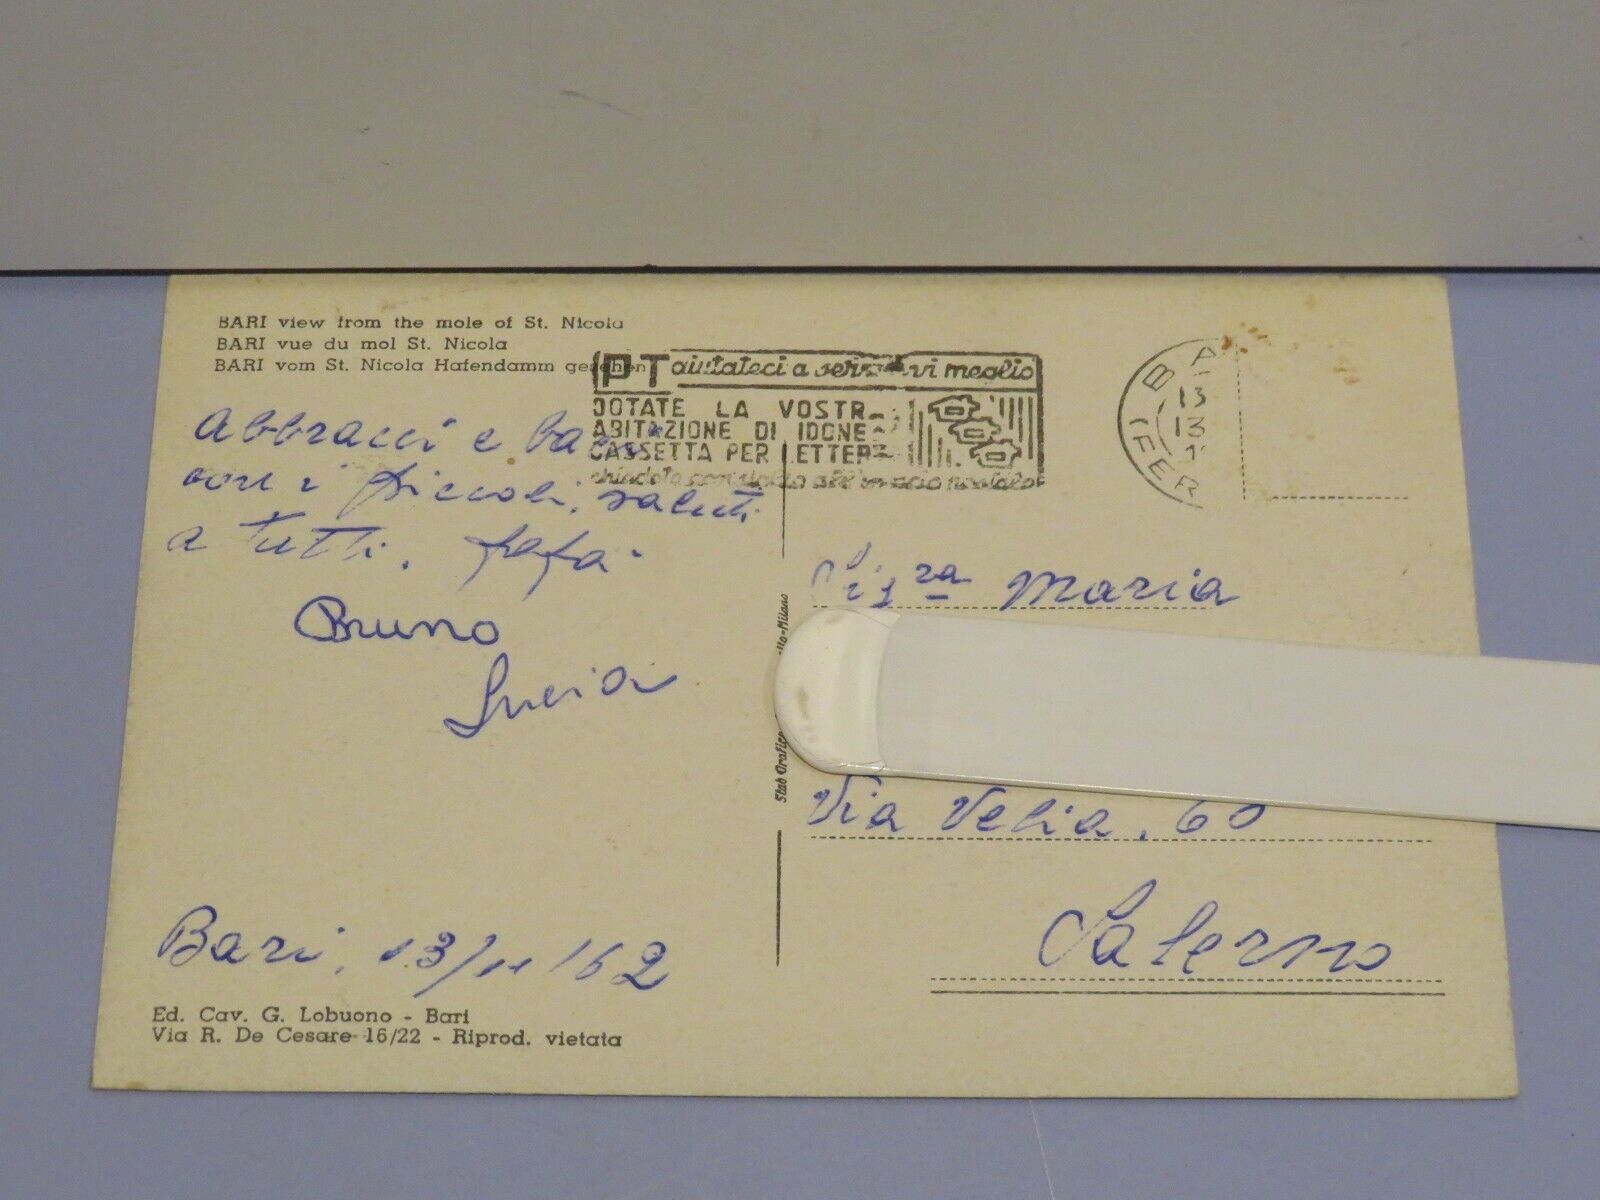 BARI view from the mole of St. Nicola
BARI vue du mol St. Nicola
BARI vom St. Nicola Hafendamm gesehen
PT aiutateci a servirvi meglio
DOTATE LA VOSTRA
ABITAZIONE DI IDONEA
CASSETTA PER LETTERE
BA
13
13
FER
Abbracci e
con i piccoli, saluti
a tutti.
Bruno
Lucia
Sig.ra Maria
Stab Grafico
Milano
Via Velia, 60
Salerno
Bari, 13/11/62
Ed. Cav. G. Lobuono - Bari
Via R. De Cesare 16/22 - Riprod. vietata